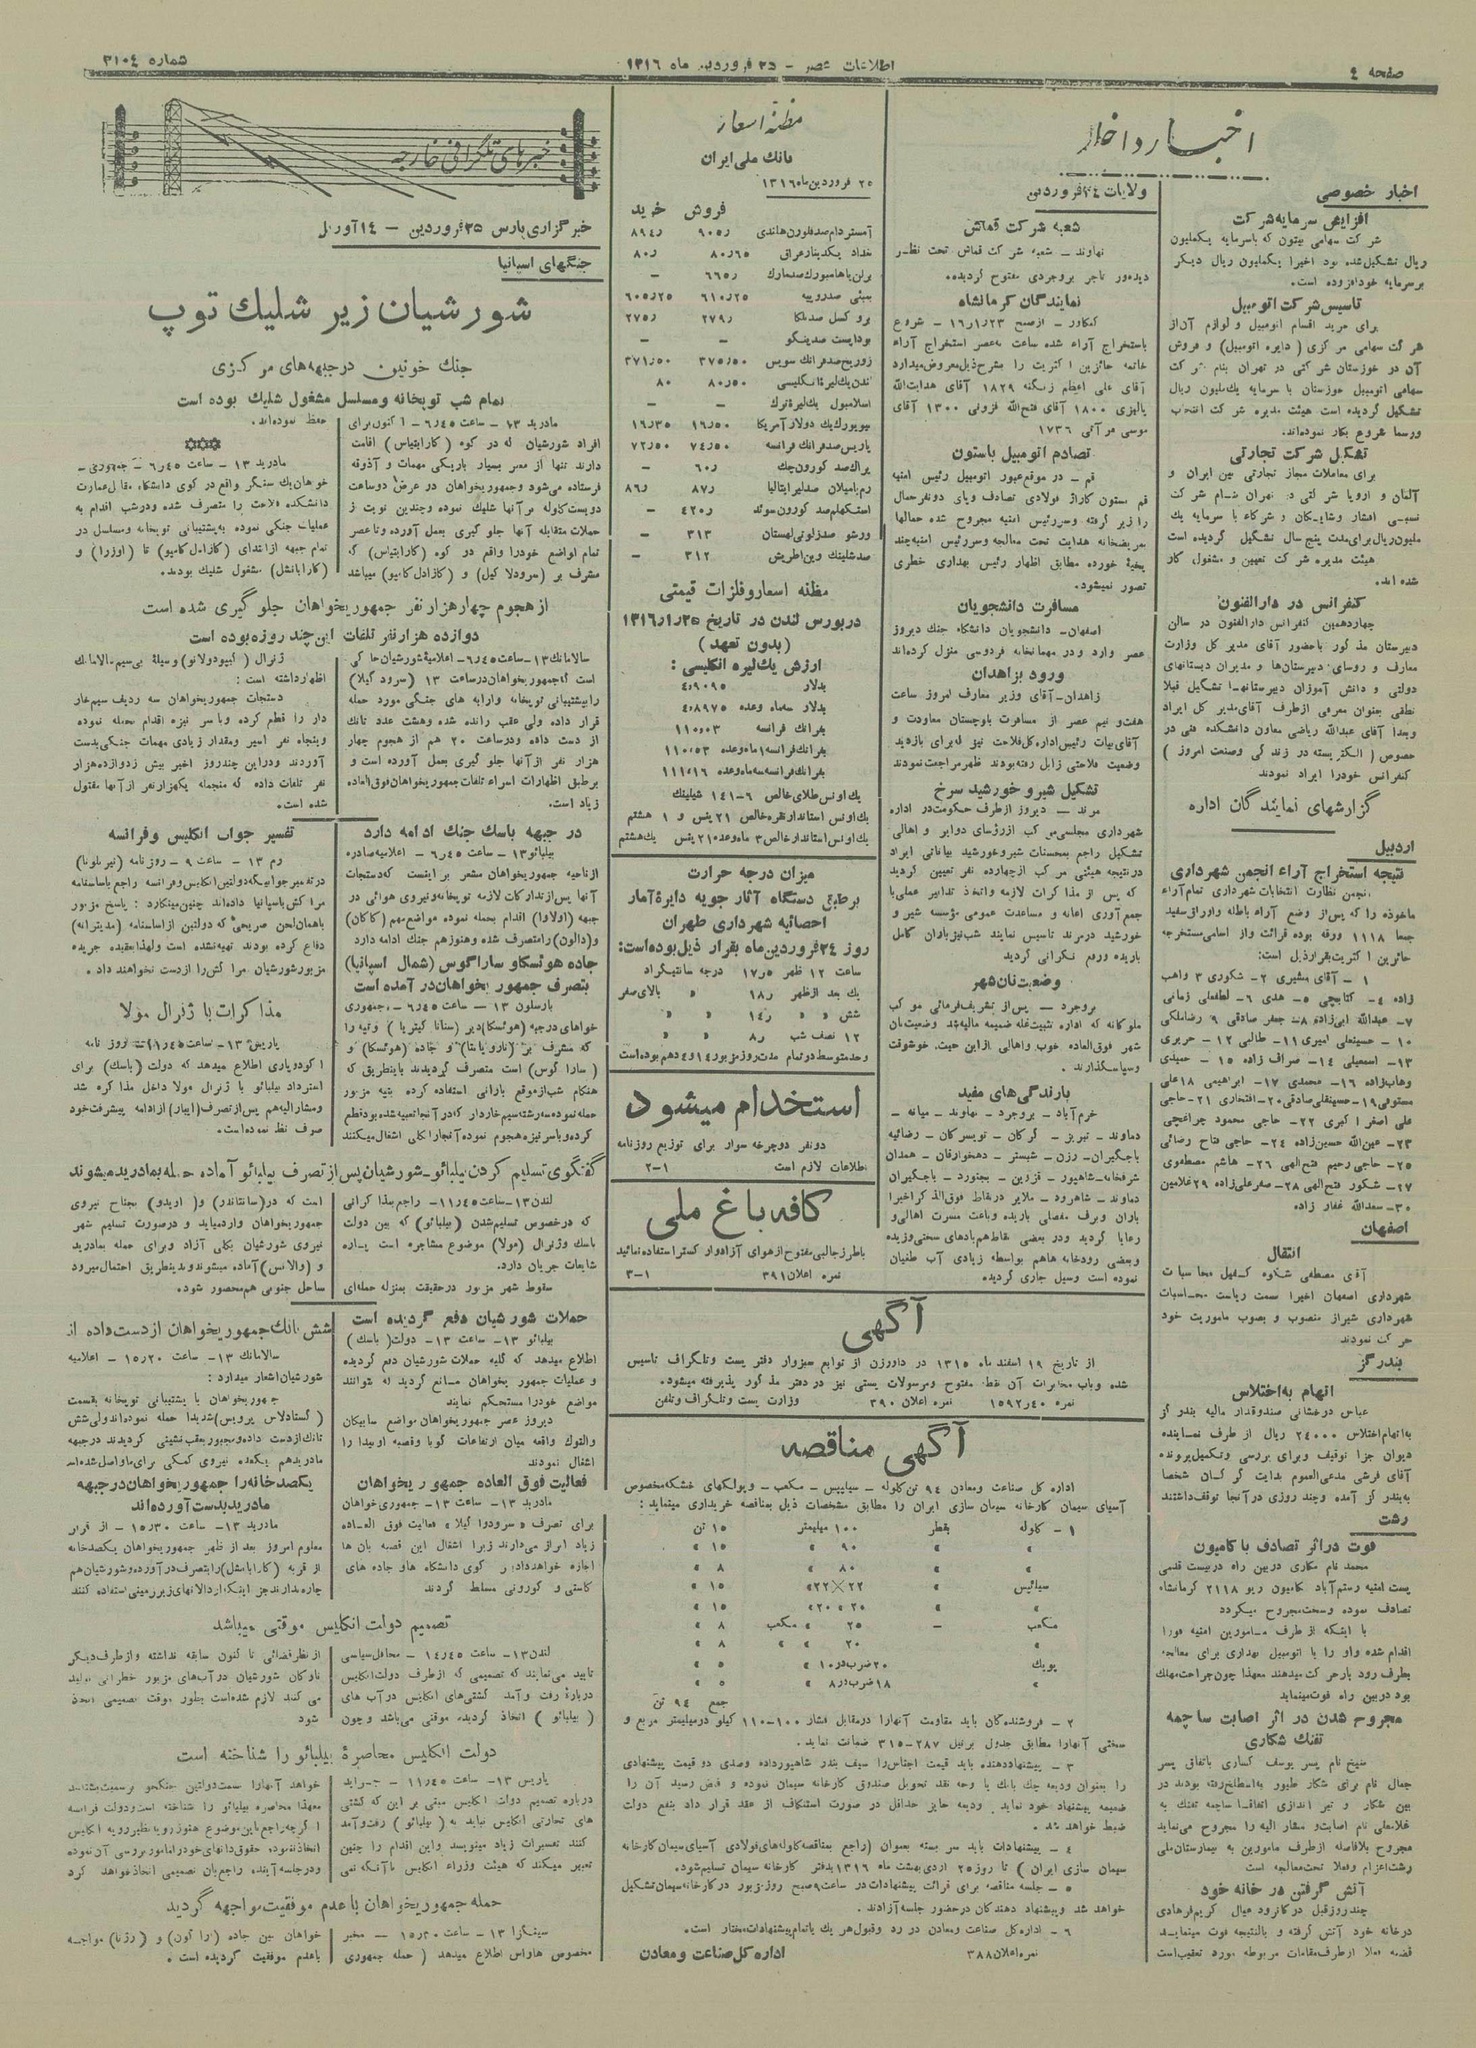 صفحه ٤
اطلاعات عصر - ٢٥ فروردین ماه ١٣١٦
شماره ٣١٠٤
اخبار داخله
اخبار خصوصی
افزایش سرمایه شرکت
شرکت سهامی بیتون که باسرمایه یکملیون
ریال تشکیل شده بود اخیرا یکملیون ریال دیگر
برسرمایه خود افزوده است.
تاسیس شرکت اتومبیل
برای خرید اقسام اتومبیل و لوازم آن از
شرکت سهامی مرکزی (دایره اتومبیل) و فروش
آن در خوزستان شرکتی در تهران بنام شرکت
سهامی اتومبیل خوزستان با سرمایه یک ملیون ریال
تشکیل گردیده است هیئت مدیره شرکت انتخاب
ورسما شروع بکار نموده‌اند.
تشکیل شرکت تجارتی
برای معاملات مجاز تجارتی بین ایران و
آلمان و اروپا شرکتی در تهران بنام شرکت
نسبی افشار وشایگان و شرکاء با سرمایه یک
ملیون ریال برای مدت پنج سال تشکیل گردیده است
هیئت مدیره شرکت تعیین و مشغول کار
شده اند.
کنفرانس در دارالفنون
چهاردهمین کنفرانس دارالفنون در سالن
دبیرستان مذکور باحضور آقای مدیر کل وزارت
معارف و روسای دبیرستان‌ها و مدیران دبستانهای
دولتی و دانش آموزان دبیرستانها تشکیل قبلا
نطقی بعنوان معرفی از طرف آقای مدیر کل ایراد
وبعدا آقای عبدالله ریاضی معاون دانشکده فنی در
خصوص (الکتریسته در زندگی وصنعت امروز)
کنفرانس خودرا ایراد نمودند
گزارشهای نمایندگان اداره
اردبیل
نتیجه استخراج آراء انجمن شهرداری
انجمن نظارت انتخابات شهرداری تمام آراء
ماخوذه را که پس از وضع آراء باطله واوراق سفید
جمعا ١١١٨ ورقه بوده قرائت واز اسامی مستخرجه
حائزین اکثریت بقرار ذیل است:
١ - آقای مشیری ٢- شکوری ٣ واهب
زاده ٤- کتابچی ٥- هدی ٦- لطفعلی زمانی
٧- عبدالله ابی‌زاده ٨- جعفر صادقی ٩ رضاملکی
١٠ - حسینعلی امیری ١١- طالبی ١٢- حریری
١٣- اسمعیلی ١٤- صراف زاده ١٥ - حمیدی
وهاب‌زاده ١٦- محمدی ١٧- ابراهیمی ١٨علی
مستوفی ١٩- حسینقلی صادقی ٢٠- افتخاری ٢١- حاجی
علی اصغر اکبری ٢٢- حاجی محمود چراغچی
٢٣- عین‌الله حسین‌زاده ٢٤- حاجی فتاح رضائی
٢٥- حاجی رحیم فتح‌الهی ٢٦- هاشم مصطفوی
٢٧- شکور فتح‌الهی ٢٨- صفرعلی‌زاده ٢٩غلامین
٣٠- سعدالله غفار زاده
اصفهان
انتقال
آقای مصطفی شکوه کفیل محاسبات
شهرداری اصفهان اخیرا سمت ریاست محاسبات
شهرداری شیراز منصوب و بصوب ماموریت خود
حرکت نمودند
بندرگز
اتهام به‌اختلاس
عباس درخشانی صندوقدار مالیه بندر گز
به‌اتهام اختلاس ٢٤٠٠٠ ریال از طرف نماینده
دیوان جزا توقیف وبرای بررسی وتکمیل پرونده
آقای فرشی مدعی‌العموم بدایت گرگان شخصا
به‌بندر گز آمده وچند روزی در آنجا توقف‌داشتند
رشت
فوت در اثر تصادف با کامیون
محمد نام مکاری دربین راه دربیست قدمی
پست امنیه رستم‌آباد کامیون ریو ٢١١٨ کرمانشاه
تصادف نموده وسخت مجروح میگردد
با اینکه از طرف مامورین امنیه فورا
اقدام شده واو را با اتومبیل بهداری برای معالجه
بطرف رود بار حرکت میدهند معهذا چون جراحت مهلک
بود دربین راه فوت مینماید
مجروح شدن در اثر اصابت ساچمه
تفنگ شکاری
مسیح نام پسر یوسف کساری باتفاق پسر
جمال نام برای شکار طیور به‌اسطلخ رفته بودند در
بین شکار و تیر اندازی اتفاقا ساچمه تفنگ به
غلامعلی نام اصابت و مشار الیه را مجروح می‌نماید
مجروح بلافاصله از طرف مامورین به بیمارستان ملی
رشت اعزام وفعلا تحت‌معالجه است
آتش گرفتن در خانه خود
چند روز قبل در کانرود عیال کریم فرهادی
درخانه خود آتش گرفته و بالنتیجه فوت مینماید
قضیه فعلا از طرف مقامات مربوطه مورد تعقیب است
ولایات ٢٤ فروردین
شعبه شرکت قماش
نهاوند - شعبه شرکت قماش تحت نظر
دیده‌ور تاجر بروجردی مفتوح گردیده.
نمایندگان کرمانشاه
کنگاور - از صبح ١٦ر١ر٢٣ - شروع
باستخراج آراء شده ساعت ٤ بعصر استخراج آراء
خاتمه حائزین اکثریت را بشرح ذیل معروض میدارد
آقای علی اعظم زنگنه ١٨٢٩ آقای هدایت‌الله
پالیزی ١٨٠٠ آقای فتح‌الله فزونی ١٣٠٠ آقای
موسی مرآتی ١٧٣٦
تصادم اتومبیل باستون
قم - در موقع عبور اتومبیل رئیس امنیه
قم بستون گاراژ فولادی تصادف وپای دونفر حمال
را زیر گرفته وسر رئیس امنیه مجروح شده حمالها
بمریضخانه هدایت تحت معالجه وسر رئیس امنیه چند
بخیهٔ خورده مطابق اظهار رئیس بهداری خطری
تصور نمیشود.
مسافرت دانشجویان
اصفهان- دانشجویان دانشگاه جنگ دیروز
عصر وارد و در مهمانخانه فردوسی منزل کرده‌اند
ورود بزاهدان
زاهدان- آقای وزیر معارف امروز ساعت
هفت‌و نیم عصر از مسافرت بلوچستان معاودت و
آقای بیات رئیس اداره کل فلاحت نیز که برای بازدید
وضعیت فلاحتی زابل رفته بودند ظهر مراجعت نمودند
تشکیل شیر و خورشید سرخ
مرند - دیروز از طرف حکومت در اداره
شهرداری مجلسی مرکب از رؤسای دوایر و اهالی
تشکیل راجع بمحسنات شیروخورشید بیاناتی ایراد
در نتیجه هیئتی مرکب از چهارده نفر تعیین گردید
که پس از مذاکرات لازمه واتخاذ تدابیر عملی با
جمع آوری اعانه و مساعدت عمومی مؤسسه شیر و
خورشید در مرند تاسیس نمایند شب نیز باران کامل
باریده ورفع نگرانی گردید
وضعیت‌نان شهر
بروجرد - پس از تشریف فرمائی موکب
ملوکانه که اداره تثبیت غله ضمیمه مالیه شد وضعیت نان
شهر فوق‌العاده خوب واهالی از این حیث خوشوقت
وسپاسگذارند.
بارندگی‌های مفید
خرم‌آباد - بروجرد - نهاوند - میانه -
دماوند - تبریز - گرگان - تویسرکان - رضائیه
باجگیران - رزن - شبستر - دهخوارقان - همدان
شرفخانه - شاهپور - قزوین - بجنورد - باجگیران
دماوند - شاهرود - ملایر در نقاط فوق‌الذکر اخیرا
باران وبرف مفصلی باریده وباعث مسرت اهالی و
رعایا گردید ودر بعضی نقاط هم بادهای سختی وزیده
وبعضی رودخانه هاهم بواسطه زیادی آب طغیان
نموده است وسیل جاری گردیده.
مظنه اسعار
بانک ملی ایران
٢٥ فروردین‌ماه ١٣١٦
فروش خرید
آمستردام صد فلورن هلندی ٩٠٥ر ٨٩٤ر
بغداد یکدینار عراق ٨٠ر٦٥ ٨٠ر
برلن یاهامبورک صد مارک ٦٦٥ر -
بمبئی صد روپیه ٦١٠ر٢٥ ٦٠٥ر٢٥
بروکسل صد بلگا ٢٧٩ر ٢٧٥ر
بوداپست صد پنگو - -
زوریخ صد فرانک سویس ٣٧٥ر٥٠ ٣٧١ر٥٠
لندن یک لیرهٔ انگلیسی ٨٠ر٥٠ ٨٠
اسلامبول یک لیره ترک - -
نیویورک یک دولار آمریکا ١٦ر٥٠ ١٦ر٣٥
پاریس صد فرانک فرانسه ٧٤ر٥٠ ٧٢ر٥٠
پراک صد کورون چک ٦٠ر -
رم یامیلان صد لیر ایتالیا ٨٧ر ٨٦ر
استکهلم صد کورون سوئد ٤٢٠ر -
ورشو صد زلوتی لهستان ٣١٣ -
صد شلینک وین اطریش ٣١٢ -
مظنه اسعار و فلزات قیمتی
در بورس لندن در تاریخ ٢٥ر١ر١٣١٦
(بدون تعهد)
ارزش یک لیره انگلیسی:
بدلار ٤ر٩٠٩٥
بدلار سه‌ماه وعده ٤ر٨٩٧٥
بفرانک فرانسه ١١٠ر٠٣
بفرانک فرانسه ١ماه وعده ١١٠ر٥٣
بفرانک فرانسه سه ماه وعده ١١١ر١٦
یک اونس طلای خالص ٦-١٤١ شیلینک
یک اونس استاندار نقره خالص ٢١ پنس و ١ هشتم
یک اونس استاندار خالص ٣ ماه وعده ٢١ پنس یک هشتم
میزان درجه حرارت
برطبق دستگاه آثار جویه دایرهٔ آمار
احصائیه شهرداری طهران
روز ٢٤ فروردین ماه بقرار ذیل بوده است:
ساعت ١٢ ظهر ١٧ر٥ درجه سانتیگراد
یک بعد از ظهر ١٨ر » بالای صفر
شش » » ١٤ر » »
١٢ نصف شب ٨ر » »
وحد متوسط در تمام مدت روز مزبور ١٤ و ٤ دهم بوده است
استخدام میشود
دونفر دوچرخه سوار برای توزیع روزنامه
اطلاعات لازم است ١-٢
کافه باغ ملی
باطرز جالبی مفتوح از هوای آزاد و ارکستر استفاده نمائید
نمره اعلان ٣٩١ ١-٣
آگهی
از تاریخ ١٩ اسفند ماه ١٣١٥ در داورزن از توابع سبزوار دفتر پست وتلگراف تاسیس
شده وباب مخابرات آن نقطه مفتوح ومرسولات پستی نیز در دفتر مذکور پذیرفته میشود.
نمره ٤٠ر١٥٩٢ نمره اعلان ٣٩٠ وزارت پست وتلگراف وتلفن
آگهی مناقصه
اداره کل صناعت ومعادن ٩٤ تن گلوله - سیلپبس - مکعب - وپولکهای خشکه مخصوص
آسیای سیمان کارخانه سیمان سازی ایران را مطابق مشخصات ذیل بمناقصه خریداری مینماید:
١ - گلوله بقطر ١٠٠ میلیمتر ١٥ تن
» » ٩٠ » ١٥ »
» » ٨٠ » ٨ »
سیلپبس » ٢٢×٢٢» ١٥ »
» » ٢٠ × ٢٠» ١٥ »
مکعب - ٢٥ » مکعب ٨ »
» ٢٠ » » ٨ »
پولک ٢٠ ضرب در ١٠» ٥ »
» ١٨ ضرب در ٨» ٥ »
جمع ٩٤ تن
٢ - فروشندگان باید مقاومت آنهارا درمقابل فشار ١٠٠-١١٠ کیلو در میلیمتر مربع و
سختی آنهارا مطابق جدول برنیل ٢٨٧-٣١٥ ضمانت نماید.
٣ - پیشنهاد دهنده باید قیمت اجناس را سیف بندر شاهپور داده وصدی دو قیمت پیشنهادی
را بعنوان ودیعه چک بانک یا وجه نقد تحویل صندوق کارخانه سیمان نموده و قبض رسید آن را
ضمیمه پیشنهاد خود نماید. ودیعه حایز حداقل در صورت استنکاف از عقد قرار داد بنفع دولت
ضبط خواهد شد.
٤ - پیشنهادات باید سر بسته بعنوان (راجع بمناقصه گلوله‌های فولادی آسیای سیمان کارخانه
سیمان سازی ایران) تا روز ٢٥ اردی بهشت ماه ١٣١٦ بدفتر کارخانه سیمان تسلیم شود.
٥ - جلسه مناقصه برای قرائت پیشنهادات در ساعت ٩ صبح روز مزبور در کارخانه سیمان تشکیل
خواهد شد وپیشنهاد دهندگان درحضور جلسه آزادند.
٦ - اداره کل صناعت ومعادن در رد وقبول هر یک یا تمام پیشنهادات مختار است.
نمره اعلان ٣٨٨ اداره کل صناعت و معادن
خبرهای تلگرافی خارجه
خبرگزاری پارس ٢٥ فروردین - ١٤ آوریل
جنگهای اسپانیا
شورشیان زیر شلیک توپ
جنگ خونین در جبهه‌های مرکزی
تمام شب توپخانه و مسلسل مشغول شلیک بوده است
مادرید ١٣ - ساعت ٦ر٤٥ - اکنون برای
افراد شورشیان که در کوه (کارابتیاس) اقامت
دارند تنها از ممر بسیار باریکی مهمات و آذوقه
فرستاده می‌شود و جمهوریخواهان در عرض دوساعت
دویست گلوله برآنها شلیک نموده وچندین نوبت از
حملات متقابله آنها جلو گیری بعمل آورده وتاعصر
تمام مواضع خودرا واقع در کوه (کارابتیاس) که
مشرف بر (سرودلا کیل) و (کازادل کامپو) میباشد
حفظ نموده‌اند.
مادرید ١٣ - ساعت ٦ر٤٥ - جمهوری -
خواهان یک سنگر واقع در کوی دانشگاه مقابل عمارت
دانشکده فلاحت را متصرف شده ودرشب اقدام به
عملیات جنگی نموده به‌پشتیبانی توپخانه ومسلسل در
تمام جبهه از ابتدای (کازادل کامپو) تا (اوزرا) و
(کارابانشل) مشغول شلیک بودند.
از هجوم چهار هزار نفر جمهوریخواهان جلو گیری شده است
دوازده هزار نفر تلفات این چند روزه بوده است
سالامانک ١٣- ساعت ٦ر٤٥ - اعلامیهٔ شورشیان حاکی
است که جمهوریخواهان در ساعت ١٣ (سرود گیلا)
را به‌پشتیبانی توپخانه وارابه های جنگی مورد حمله
قرار داده ولی عقب رانده شده وهشت عدد تانک
از دست داده ودرساعت ٢٠ هم از هجوم چهار
هزار نفر از آنها جلو گیری بعمل آورده است و
برطبق اظهارات اسراء تلفات جمهوریخواهان فوق‌العاده
زیاد است.
ژنرال (کیپودولانو) وسیلهٔ بی‌سیم سالامانک
اظهار داشته است:
دستجات جمهوریخواهان سه ردیف سیم‌خار
دار را قطع کرده وباسر نیزه اقدام بحمله نموده
وپنجاه نفر اسیر ومقدار زیادی مهمات جنگی بدست
آوردند ودراین چند روز اخیر بیش از دوازده هزار
نفر تلفات داده که منجمله یکهزار نفر از آنها مقتول
شده است.
در جبهه باسک جنگ ادامه دارد
بیلبائو ١٣ - ساعت ٦ر٤٥ - اعلامیه صادره
از ناحیه جمهوریخواهان مشعر بر اینست که دستجات
آنها پس از تدارکات لازمه توپخانه ونیروی هوائی در
جبهه (اولاوا) اقدام بحمله نموده مواضع مهم (کاکان)
و (دالون) را متصرف شده وهنوز هم جنگ ادامه دارد
جاده هوئسکا و ساراگوس (شمال اسپانیا)
بتصرف جمهوریخواهان در آمده است
بارسلون ١٣ - ساعت ٦ر٤٥ - جمهوری
خواهان درجبهه (هوئسکا) دیر (سانتا کیتریا) وتپه را
که مشرف بر (ناروپابنتا) و جاده (هوئسکا) و
(ساراگوس) است متصرف گردیدند باینطریق که
هنگام شب از موقع بارانی استفاده کرده بتپه مزبور
حمله نموده سه رشته سیم خاردار که در آنجا تعبیه شده بود قطع
کرده وباسر نیزه هجوم نموده آنجارا کلی اشغال میکنند
تفسیر جواب انگلیس و فرانسه
رم ١٣ - ساعت ٩ - روزنامه (تیربلونا)
در تفسیر جوابیکه دولتین انگلیس وفرانسه راجع باساسنامه
مراکش باسپانیا داده‌اند چنین مینگارد: پاسخ مزبور
باهمان لحن صریحی که دولتین از اساسنامه (مدیترانه)
دفاع کرده بودند تهیه نشده است ولهذا بعقیده جریده
مزبور شورشیان مراکش را از دست نخواهند داد.
مذاکرات با ژنرال مولا
پاریس ١٣- ساعت ١١ر٤٥ - روز نامه
اکودوپاری اطلاع میدهد که دولت (باسک) برای
استرداد بیلبائو با ژنرال مولا داخل مذاکره شده
ومشارالیه هم پس از تصرف (ایبار) از ادامه پیشرفت خود
صرف نظر نموده است.
گفتگوی تسلیم کردن بیلبائو - شورشیان پس از تصرف بیلبائو آماده حمله بمادرید میشوند
لندن ١٣- ساعت ١١ر٤٥ - راجع بمذاکراتی
که درخصوص تسلیم شدن (بیلبائو) که بین دولت
باسک وژنرال (مولا) موضوع مشاجره است پاره
شایعات جریان دارد.
سقوط شهر مزبور درحقیقت بمنزله حمله‌ای
است که در (سانتاندر) و (اویدو) بجناح نیروی
جمهوریخواهان وارد میاید و درصورت تسلیم شهر
نیروی شورشیان بکلی آزاد وبرای حمله بمادرید
و (والانس) آماده میشوند وبدینطریق احتمال میرود
ساحل جنوبی هم محصور شود.
حملات شورشیان دفع گردیده است
بیلبائو ١٣- ساعت ١٣- دولت (باسک)
اطلاع میدهد که کلیه حملات شورشیان دفع گردیده
و عملیات جمهوریخواهان مانع گردید که بتوانند
مواضع خودرا مستحکم نمایند
دیروز عصر جمهوریخواهان مواضع سابیگان
والتوک واقعه میان ارتفاعات گوبا وقصبه اوبیدا را
اشغال نمودند
فعالیت فوق العاده جمهوریخواهان
مادرید ١٣- ساعت ١٣- جمهوری‌خواهان
برای تصرف «سرودوا گیلا» فعالیت فوق العاده
زیاد ابراز می‌دارند زیرا اشغال این قصبه بآن ها
اجازه خواهد داد بر کوی دانشگاه هاو جاده های
کاستی و کورونی مسلط گردند
شش تانک جمهوریخواهان از دست داده اند
سالامانک ١٣- ساعت ١٥ر٢٠ - اعلامیه
شورشیان اشعار میدارد:
جمهوریخواهان با پشتیبانی توپخانه بقسمت
(گستادلاس پرویس) شدیدا حمله نموده‌اند ولی شش
تانک از دست داده ومجبور بعقب نشینی گردیدند درجبهه
مادرید هم یکعده نیروی کمکی برای ماواصل شده است
یکصد خانه را جمهوریخواهان در جبهه
مادرید بدست آورده‌اند
مادرید ١٣- ساعت ١٥ر٣٠ - از قرار
معلوم امروز بعد از ظهر جمهوریخواهان یکصد خانه
از قریه (کارابانشل) را بتصرف در آورده وشورشیان هم
چاره ندارند جز اینکه از دالانهای زیرزمینی استفاده کنند
تصمیم دولت انگلیس موقتی میباشد
لندن ١٣- ساعت ١٤ر٤٥ - محافل سیاسی
تایید می‌نمایند که تصمیمی که از طرف دولت انگلیس
دربارهٔ رفت و آمد کشتی‌های انگلیس در آب های
(بیلبائو) اتخاذ گردیده موقتی می‌باشد وچون
از نظر قضائی تا کنون سابقه نداشته واز طرف دیگر
ناوگان شورشیان در آب‌های مزبور خطراتی تولید
می کنند لازم شده است بطور موقت تصمیمی اتخاذ
شود
دولت انگلیس محاصرهٔ بیلبائو را شناخته است
پاریس ١٣- ساعت ١١ر٤٥ - جراید
درباره تصمیم دولت انگلیس مبنی بر این که کشتی
های تجارتی انگلیس نباید به (بیلبائو) رفت و آمد
کنند تفسیرات زیاد مینویسد واین اقدام را چنین
تعبیر میکند که هیئت وزراء انگلیس با آنکه نمی
خواهد آنهارا سمت دولتین جنگجو برسمیت بشناسد
معهذا محاصره بیلبائو را شناخته است ودولت فرانسه
اگرچه راجع باین موضوع هنوز رویه نظیر رویه انگلیس
اتخاذ ننموده حقوق دانهای خود را مامور بررسی آن نموده
ودرجلسه آینده راجع بآن تصمیمی اتخاذ خواهد کرد
حمله جمهوریخواهان با عدم موفقیت مواجهه گردید
سینگرا ١٣ - ساعت ١٥ر٢٠ - مخبر
مخصوص هاواس اطلاع میدهد (حمله جمهوری
خواهان بین جاده (اراگون) و (رزنا) مواجهه
باعدم موفقیت گردیده است.